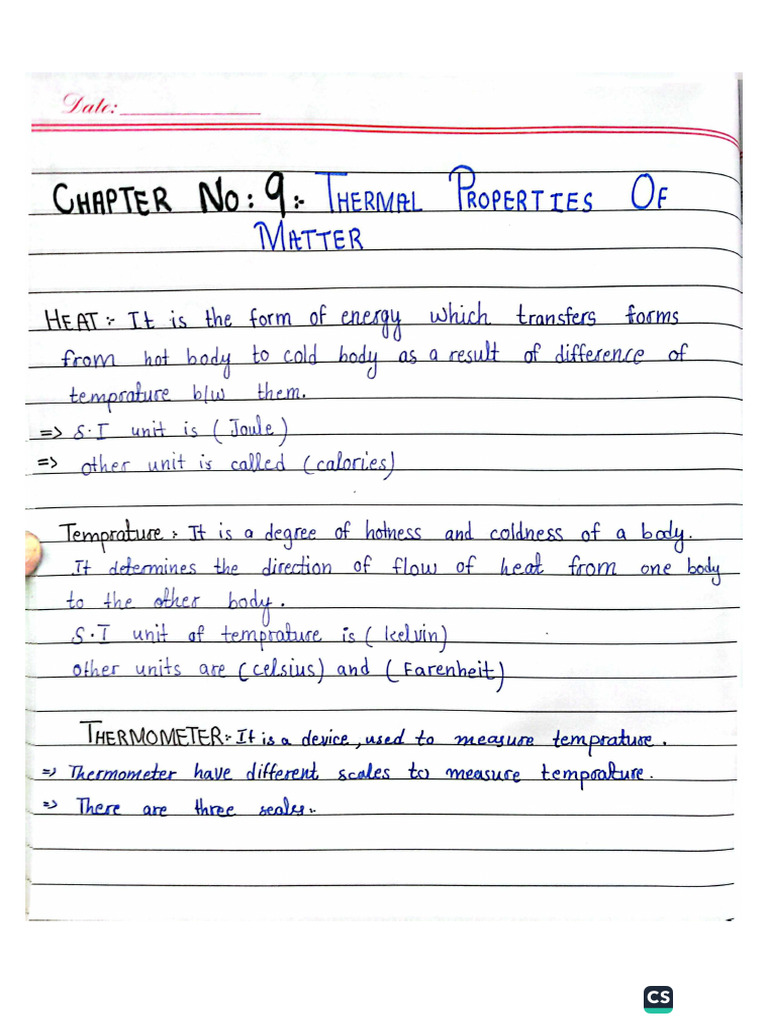 Date:
CHAPTER No: 9:- THERMAL PROPERTIES OF
MATTER
HEAT:- It is the form of energy which transfers forms
from hot body to cold body as a result of difference of
temprature b/w them.
=> S.I unit is (Joule)
=> other unit is called (calories)
Temprature:- It is a degree of hotness and coldness of a body.
It determines the direction of flow of heat from one body
to the other body.
S.I unit of temprature is (kelvin)
other units are (celsius) and (Farenheit)
THERMOMETER:- It is a device, used to measure temprature.
=> Thermometer have different scales to measure temprature.
=> There are three scales:-
CS